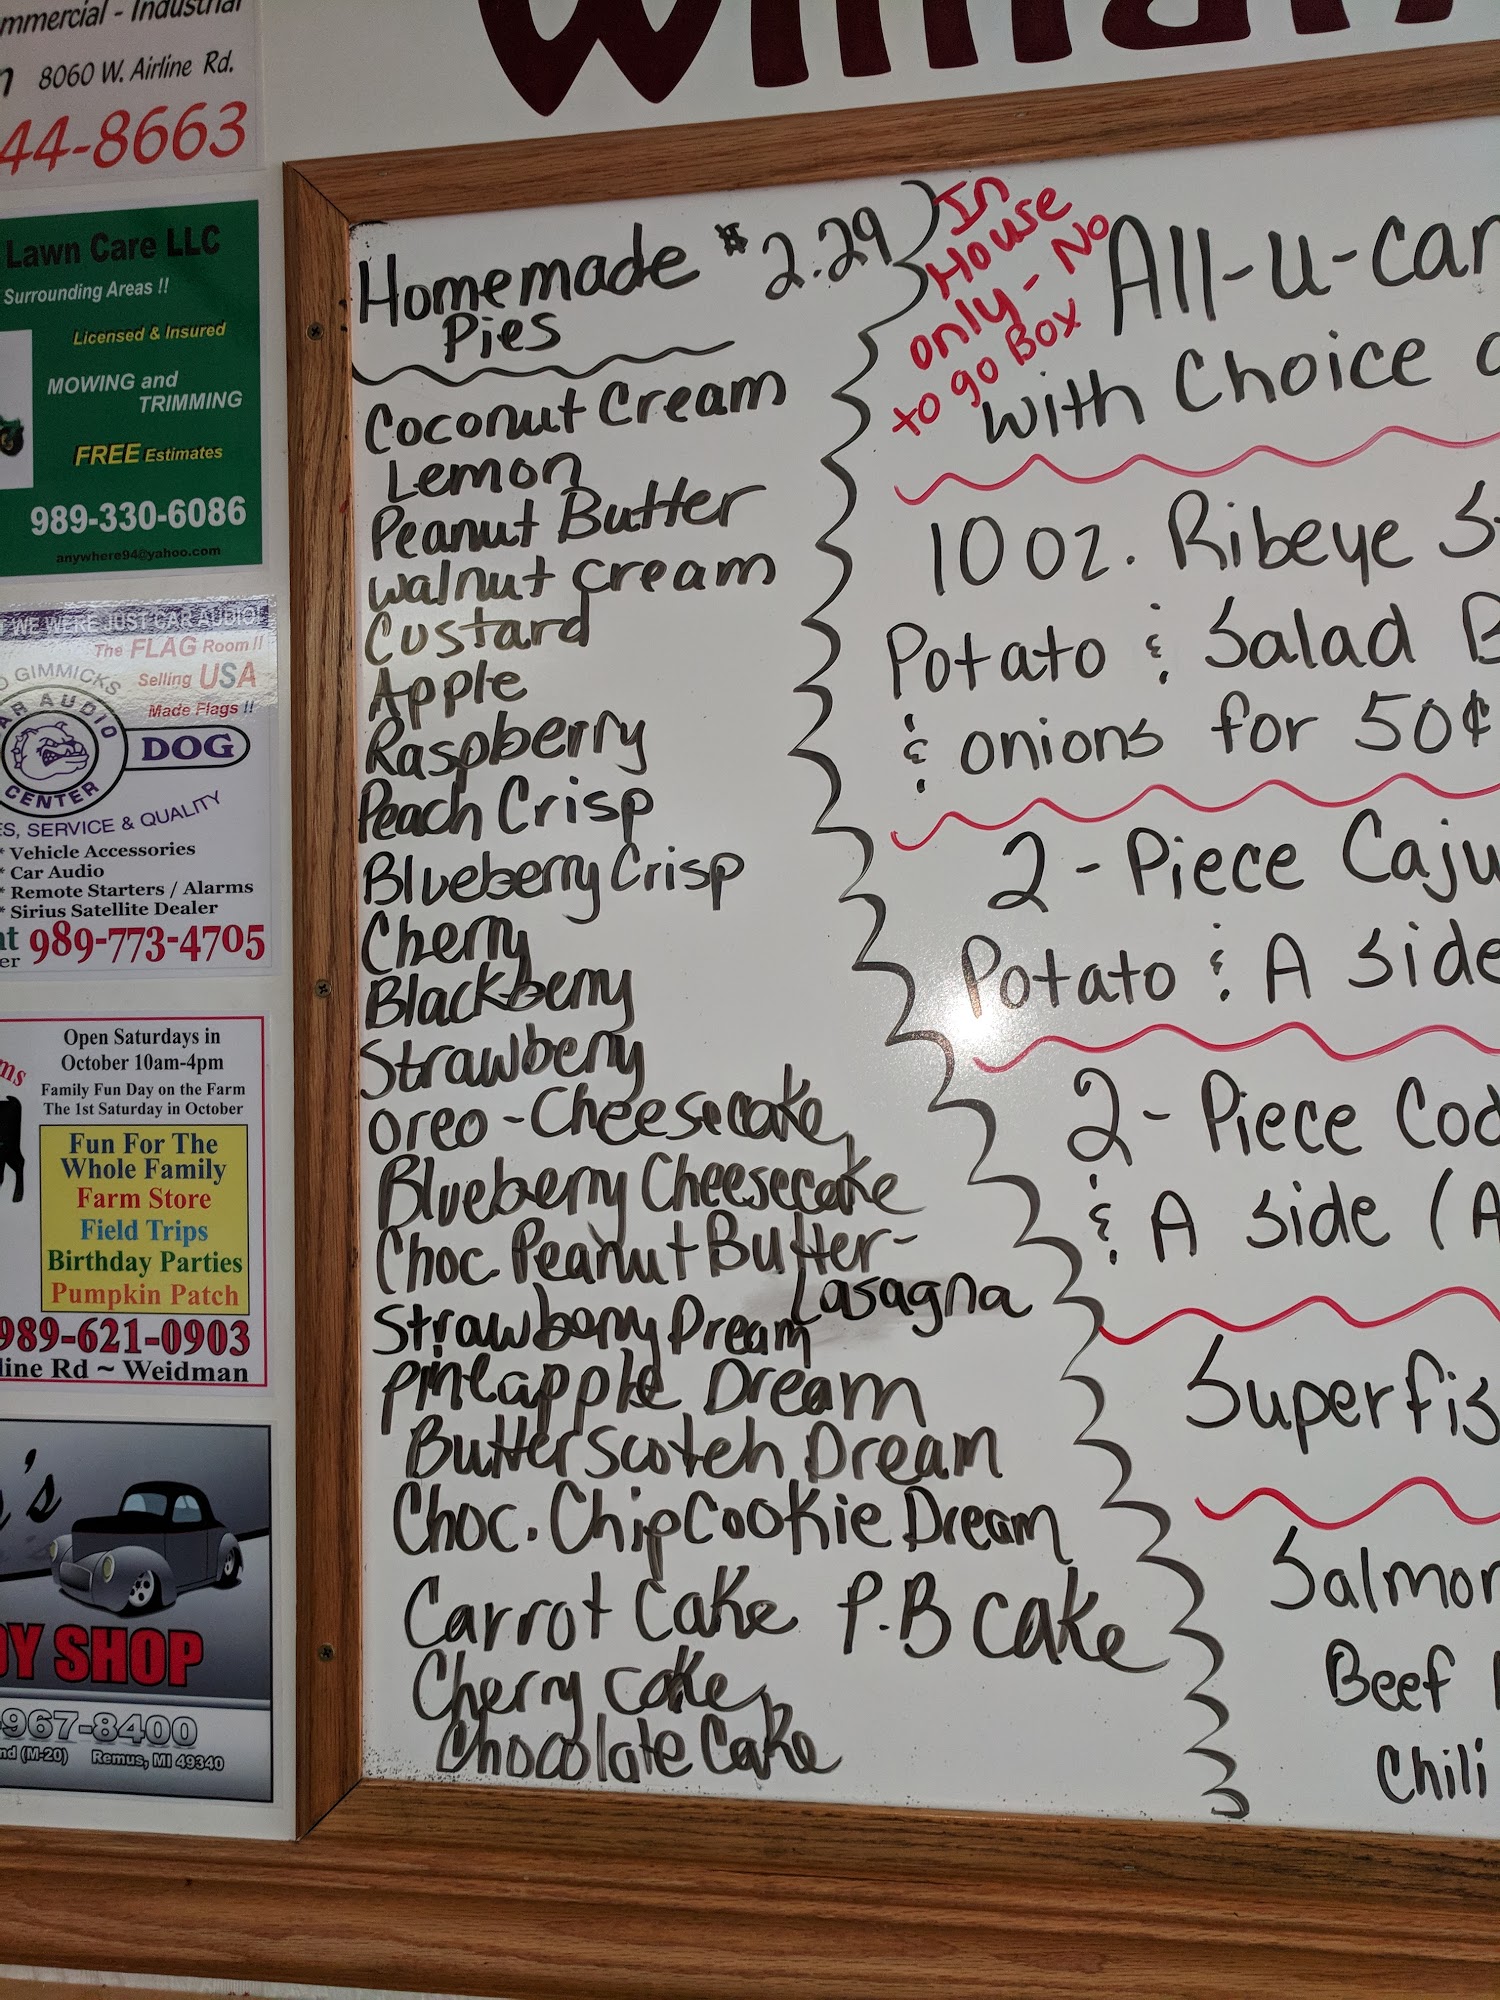 mmercial - Industrial
8060 W. Airline Rd.
44-8663
Lawn Care LLC
Surrounding Areas !!
Licensed & Insured
MOWING and
TRIMMING
FREE Estimates
989-330-6086
anywhere94@yahoo.com
WE WERE JUST CAR AUDIO!
The FLAG Room!!
GIMMICKS
Selling USA
Made Flags !!
CAR AUDIO
DOG
CENTER
ES, SERVICE & QUALITY
* Vehicle Accessories
* Car Audio
* Remote Starters / Alarms
* Sirius Satellite Dealer
989-773-4705
Open Saturdays in
October 10am-4pm
Family Fun Day on the Farm
The 1st Saturday in October
Fun For The
Whole Family
Farm Store
Field Trips
Birthday Parties
Pumpkin Patch
989-621-0903
line Rd ~ Weidman
's
DY SHOP
967-8400
nd (M-20) Remus, MI 49340
Homemade $2.29
Pies
Coconut Cream
Lemon
Peanut Butter
walnut cream
Custard
Apple
Raspberry
Peach Crisp
Blueberry Crisp
Cherry
Blackberry
Strawberry
Oreo-Cheesecake
Blueberry Cheesecake
Choc Peanut Butter-
Lasagna
Strawberry Dream
Pineapple Dream
Butterscotch Dream
Choc. Chip Cookie Dream
Carrot Cake P.B Cake
Cherry Cake
Chocolate Cake
In
House
only - No
to go Box
All-u-can
with Choice
10 oz. Ribeye
Potato & Salad
& onions for 50¢
2-Piece Caju
Potato & A side
2-Piece Cod
& A side (A
Superfis
Salmon
Beef
Chili